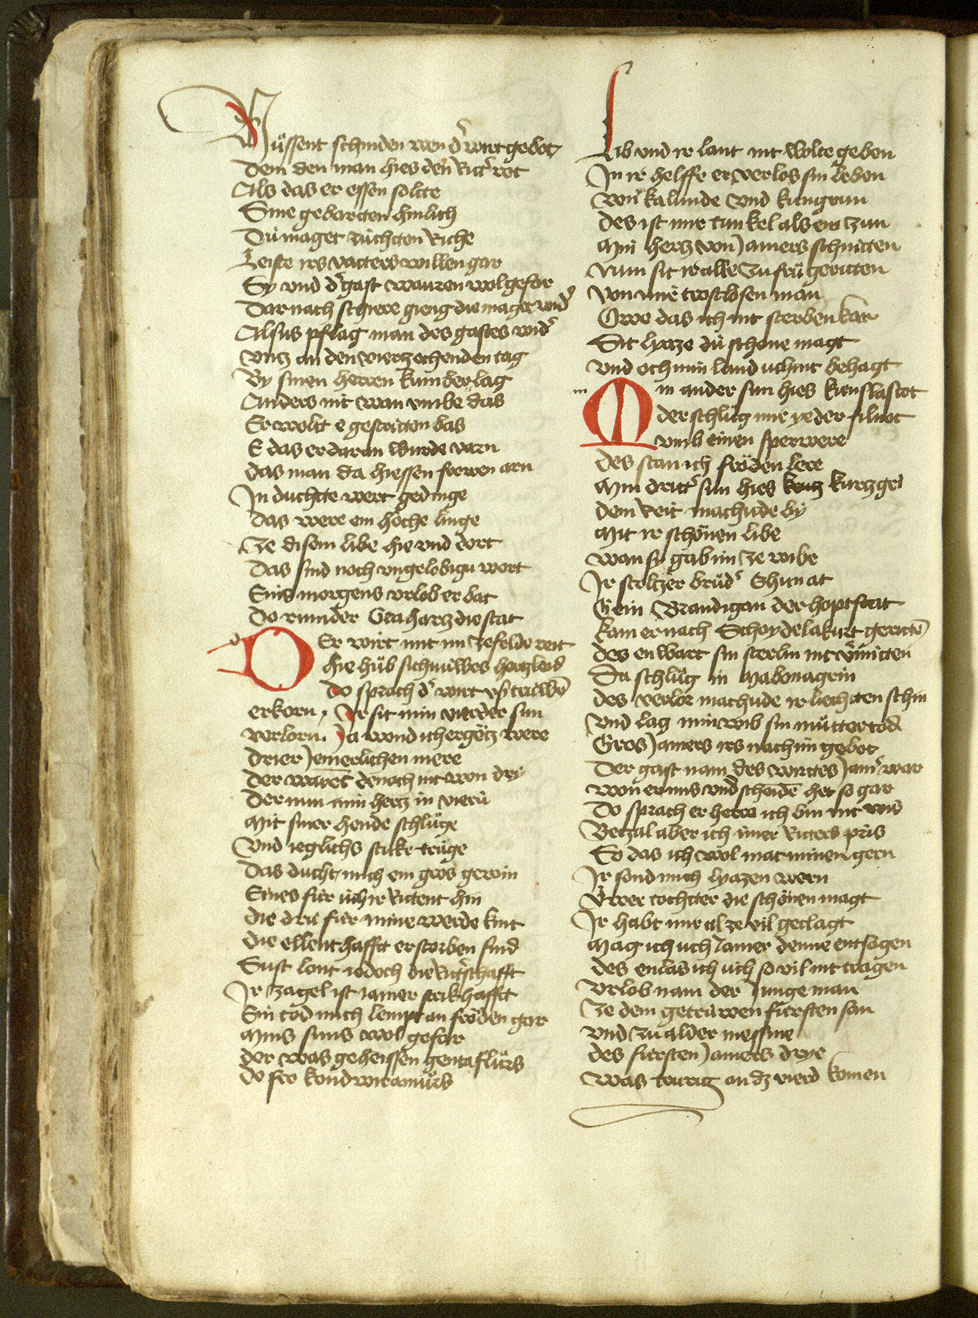 Müssent schinden wen dˢ wirt gebot
Dem den man hies den Rittˢ rot
Als das er essen solte
Sine geborten himlich
Dü maget züchten Riche
Leiste irs vatters willen gar
Sÿ vnd dˢ gast wauren wol gefar
Dar nach schiere gieng die maget widˢ
Alsus pflag man des gastes widˢ
Vntz an den vierzechenden tag
By sinen herren kumber lag
Anders nit wan vmbe das
Er wolt e gestritten bas
E das er daran wurde warn
Das man da hiessen frowen arn
In duchte wert gedinge
Das were ein höche linge
Ze disem libe hie vnd dort
Das sind noch vngelobigu wort
Sins morgens vrlob er bat
Do rumder Grahartz die stat
DEr wirt mit im ze felde reit
Hie hüb sich nuwes hertzleid
Do sprach dˢ wirt vs truwē
erkorn / Ir sit min vierder sun
verlorn. Ja wond ich ergötz were
Drier Jemerlichen mere
Der waret dēnoch nit won drÿ
Der nun min hertz in vierü
Mit siner hende schlüge
Vnd ieglichs stuke trüge
Das ducht mich ein gros gewin
Eines für üch ir Rittent hin
Die drü für mine werde kint
Die ellenthafft erstorben sind
Sust lont iedoch die Rittˢschafft
Ir zagel ist iamer strikhafft
Ein tod mich lempt an fröden gar
Mins suns wol gefar
Der was geheissen gentaflürs
Do fro kondwiramürs
Lib vnd ir lant nit wolte geben
In ir helffe er verlos sin leben
Von kalmide vnd kingrun
Des ist mir tunkel als ein zun
Min hertz von Jamers schnitten
Nun sit ir alle zu frü geritten
Von mir trostlosen man
Owe das ich nit sterben kan
Sit lyaze dü schöne magt
Vnd och min land uch nit behagt
MIn ander sun hies kunslascot
der schlüg mir yeder filuot
vmb einen sperwere
Des stan ich fröden lere
Min drittˢ sun hies kurtzgri
Dem reit machude by
Mit ir schönen libe
Wan sy gab im ze wibe
Ir stoltzer brüdˢ Ehunat
Gein Brandigan der hoptstat
Kam er nach Schoydelakurt geritē
Des en wart sin sterbin nit vˢmitten
Da schlüg in Mabonagrin
Des verlor machude ir liechten schin
Vnd lag min wib sin mütter tod
Gros Jamers irs nach im gebot
Der gast nam des wirttes Jamˢ war
Won er imis vndscheidē het so gar
Do sprach er herre ich bin nit wis
Bezal aber ich imer Ritters pris
So das ich wol mac minen gern
Ir sond mich lyazen wern
Uwer tochtter die schönen magt
Ir habt mir al ze vil geclagt
Mag ich uch Jamer denne entsagen
Des en las ich uch so vil nit tragen
Vrlob nam der Junge man
Ze dem getruwen fürsten san
Vnd zu alder messnie
Des fürsten Jamers drye
Was trurig an dz vierd komen